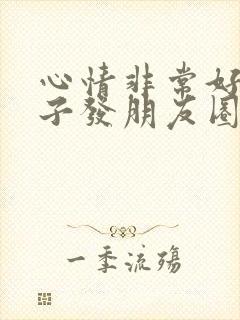 心情非常好
子發朋友圈
一季流殤